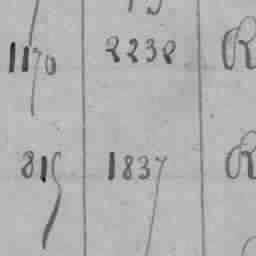 1170 2238 R
815 1837 R